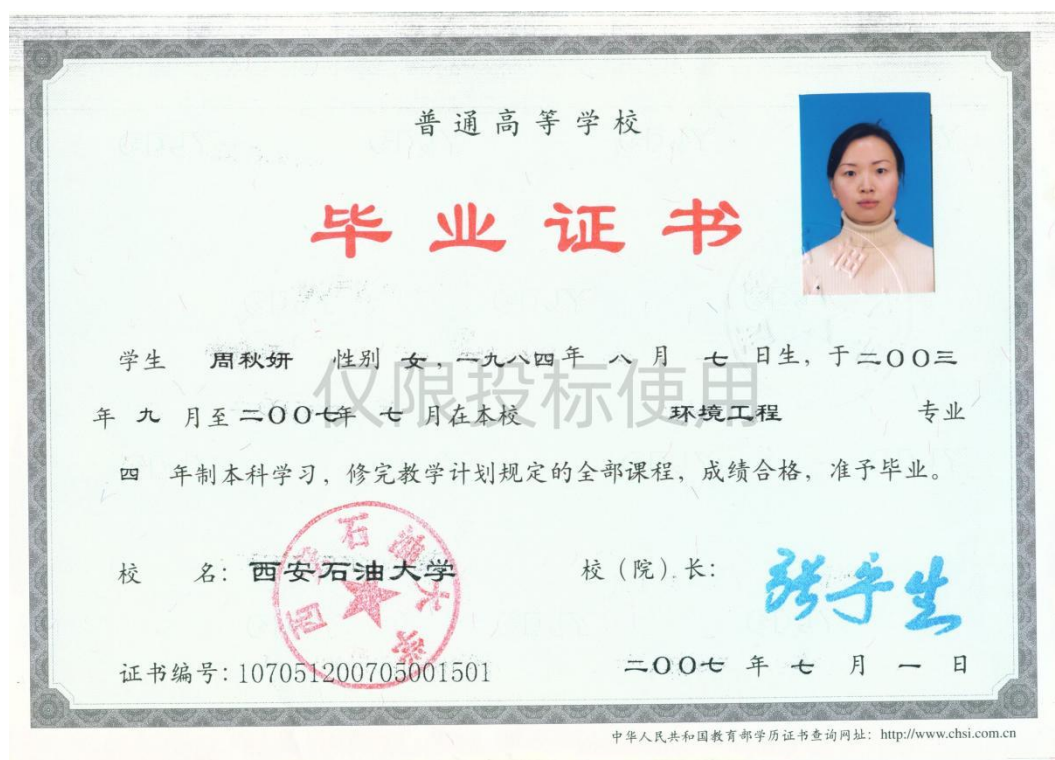 普通高等学校
毕业证书
学生 周秋妍 性别 女，一九八四年 八 月 七 日生，于二〇〇三
年 九 月至二〇〇七年 七 月在本校 环境工程 专业
四 年制本科学习，修完教学计划规定的全部课程，成绩合格，准予毕业。
仅限投标使用
校 名：西安石油大学
西安石油大学
校（院）长：
张宁生
证书编号：107051200705001501
二〇〇七 年 七 月 一 日
中华人民共和国教育部学历证书查询网址：http://www.chsi.com.cn